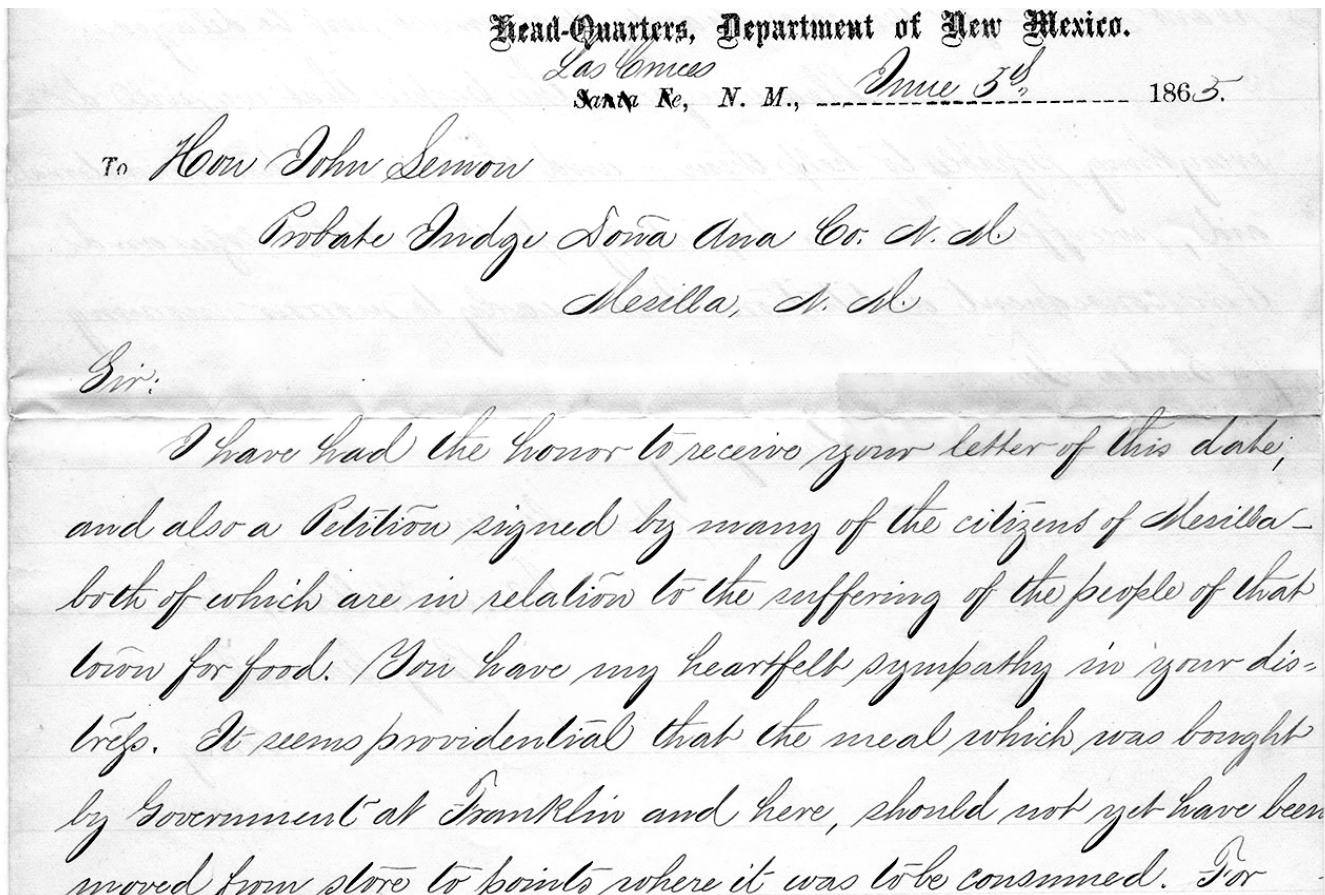 Head-Quarters, Department of New Mexico.
Las Cruces
Santa Fe, N. M., June 5th, 1865.
To Hon John Lemon
Probate Judge Doña Ana Co. N. M.
Mesilla, N. M.
Sir:
I have had the honor to receive your letter of this date,
and also a Petition signed by many of the citizens of Mesilla–
both of which are in relation to the suffering of the people of that
town for food. You have my heartfelt sympathy in your dis=
tress. It seems providential that the meal which was bought
by Government at Franklin and here, should not yet have been
moved from store to points where it was to be consumed. For